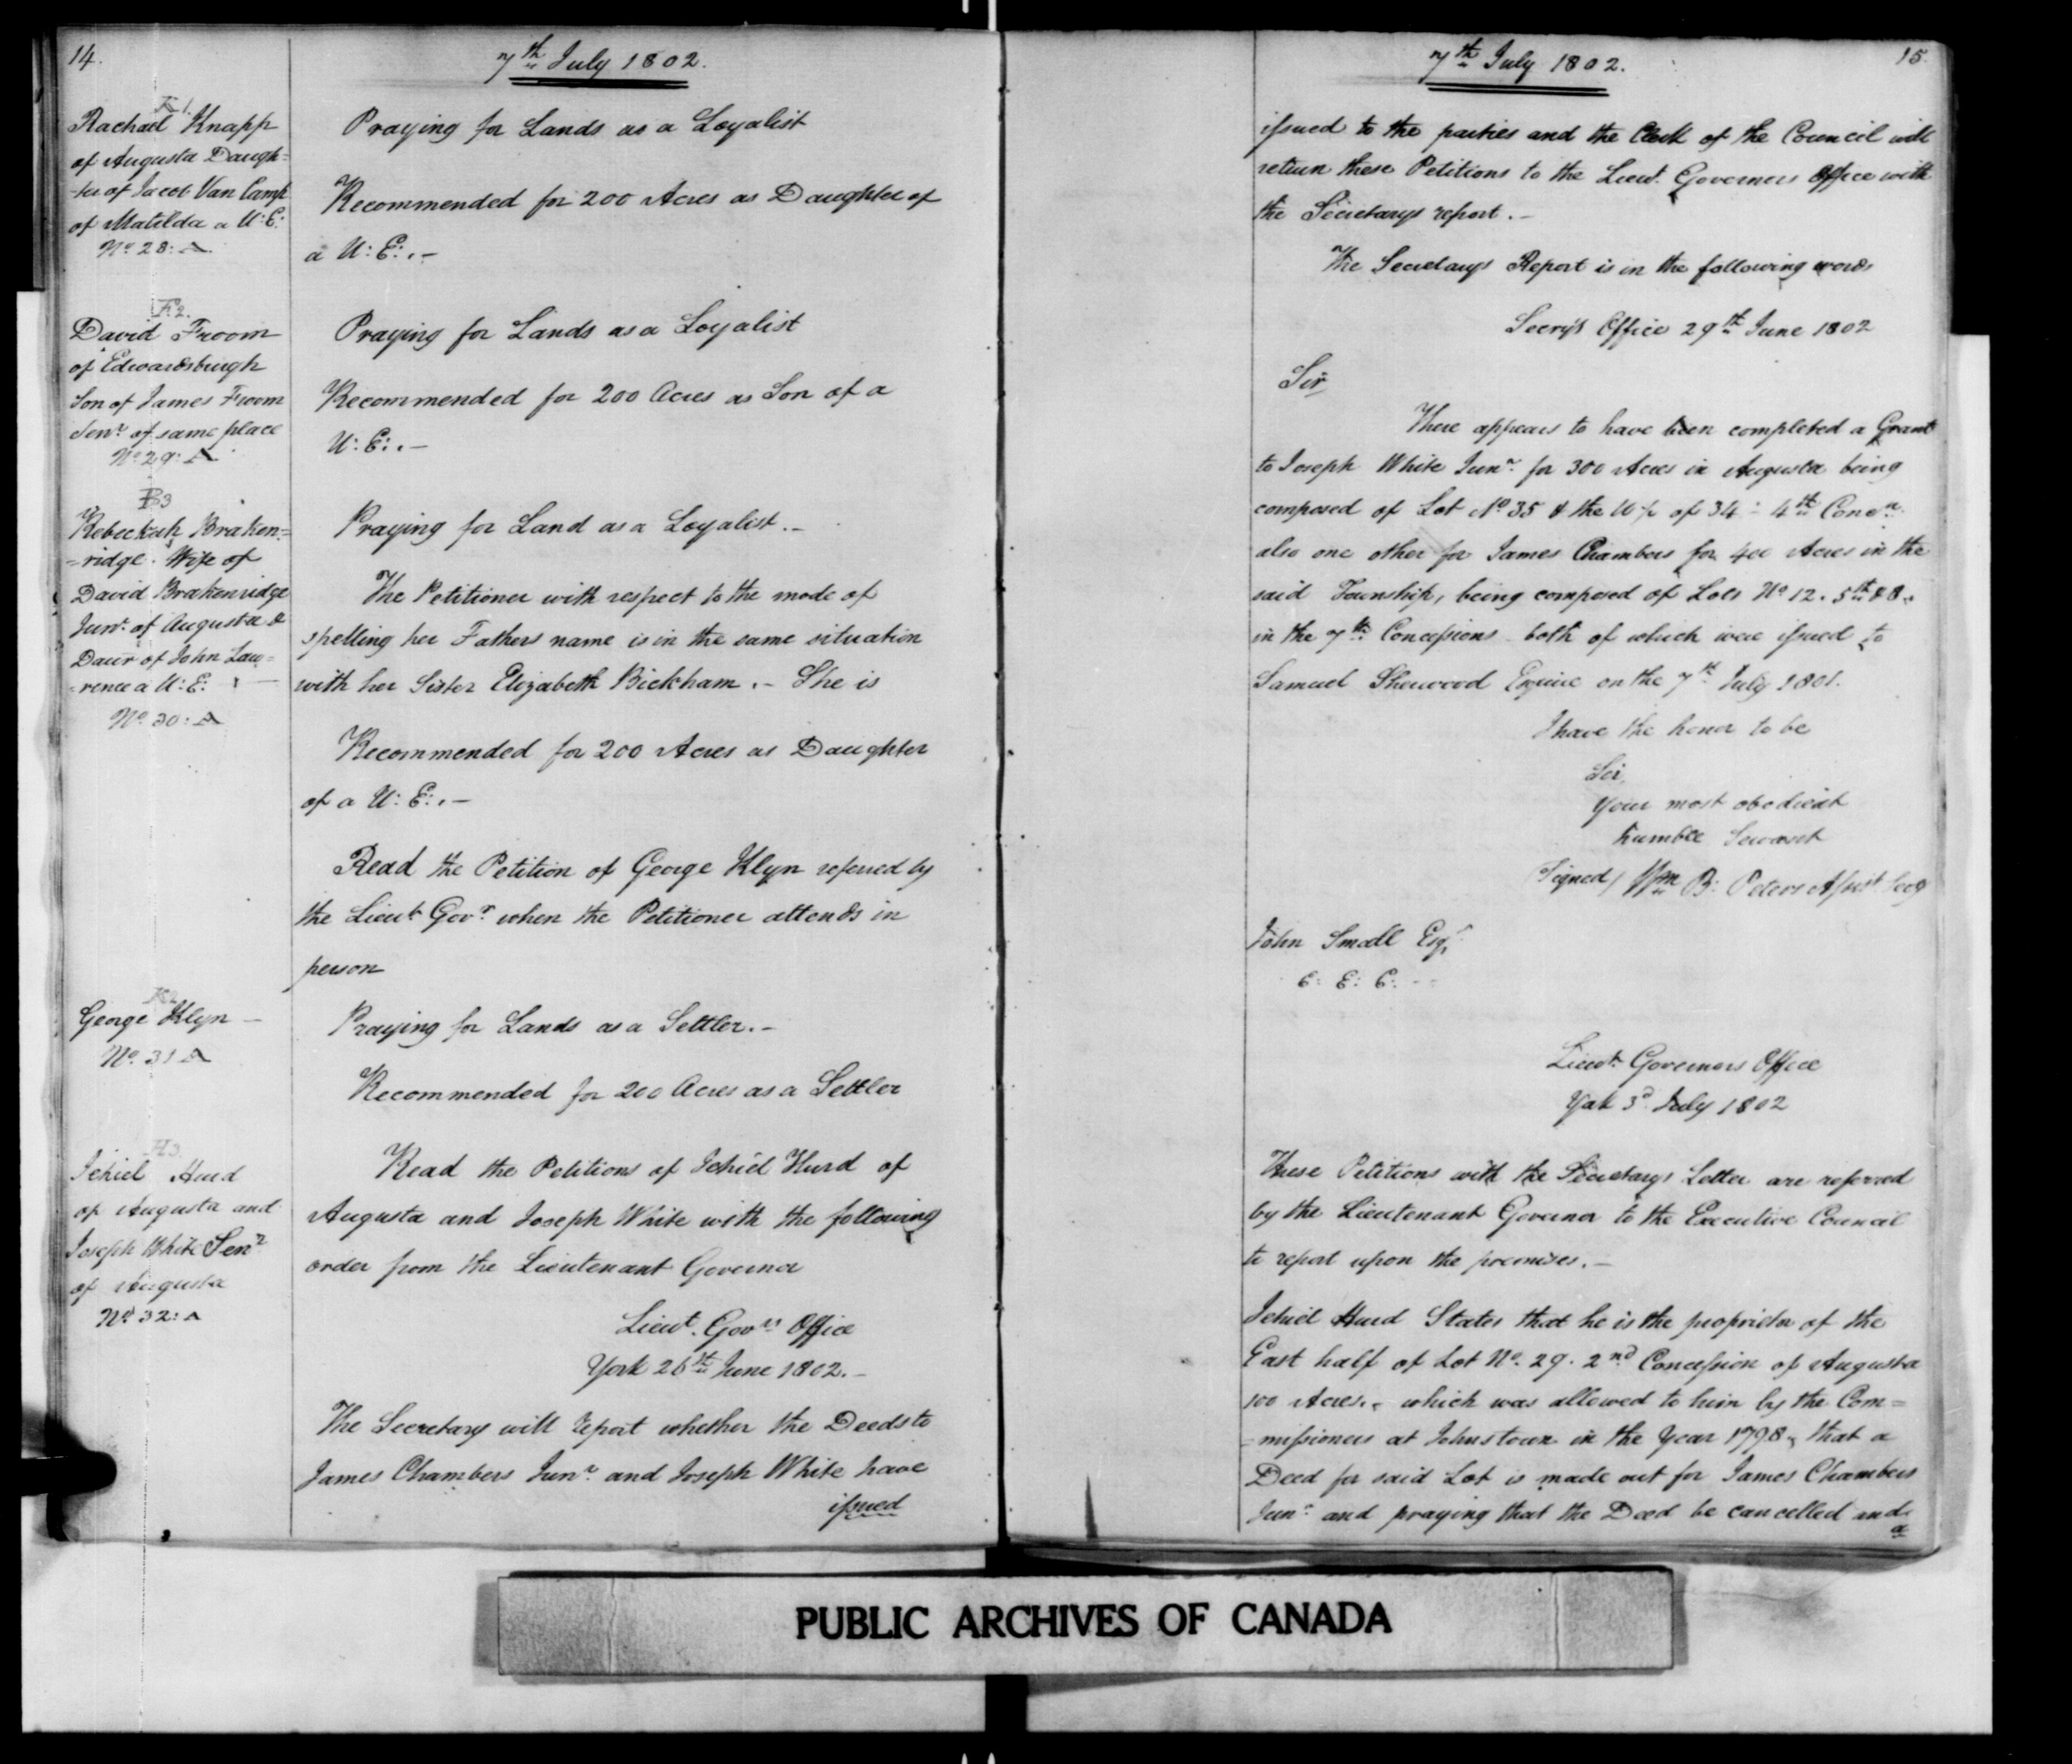 14.
7th July 1802.
K1.
Rachael Knapp
of Augusta Daugh=
=ter of Jacob Van Camp
of Matilda a U: E:
No. 28: A.
Praying for Lands as a Loyalist
Recommended for 200 Acres as Daughter of
a U: E:. –
F2.
David Froom
of Edwardsburgh
Son of James Froom
Senr. of same place
No. 29: A.
Praying for Lands as a Loyalist
Recommended for 200 Acres as Son of a
U: E:. –
B3
Rebeckah Braken=
=ridge. Wife of
David Brakenridge
Junr. of Augusta &
Daur of John Law=
=rence a U: E:
No. 30: A
Praying for Land as a Loyalist. –
The Petitioner with respect to the mode of
spelling her Fathers name is in the same situation
with her Sister Elizabeth Bickham. – She is
Recommended for 200 Acres as Daughter
of a U: E:. –
Read the Petition of George Klyn referred by
the Lieut Govr. when the Petitioner attends in
person
K2
George Klyn –
No. 31 A
Praying for Lands as a Settler. –
Recommended for 200 Acres as a Settler
H3.
Jehiel Hurd
of Augusta and
Joseph White Senr.
of Augusta
No. 32: A
Read the Petitions of Jehiel Hurd of
Augusta and Joseph White with the following
order from the Lieutenant Governor
Lieut. Govrs. Office
York 26th June 1802. –
The Secretary will report whether the Deeds to
James Chambers Junr. and Joseph White have
issued
7th July 1802.
15.
issued to the parties and the Clerk of the Council will
return these Petitions to the Lieut. Governors Office with
the Secretarys report. –
The Secretarys Report is in the following words
Secrys Office 29th June 1802
Sir,
There appears to have been completed a Grant
to Joseph White Junr. for 300 Acres in Augusta being
composed of Lot No. 35 & the W½ of 34 – 4th Conon.
also one other for James Chambers for 400 Acres in the
said Township, being composed of Lots No. 12. 5th & 8.
in the 7th Concessions both of which were issued to
Samuel Sherwood Esquire on the 7th July 1801.
I have the honor to be
Sir,
Your most obedient
humble Servant
Signed / Wm B: Peters Assist Secy
John Small Esqr.
C: E: C: –
Lieut. Governors Office
York 3d. July 1802
These Petitions with the Secretarys Letter are referred
by the Lieutenant Governor to the Executive Council
to report upon the premises. –
Jehiel Hurd States that he is the proprietor of the
East half of Lot No. 29. 2nd Concession of Augusta
100 Acres., which was allowed to him by the Com=
=missioners at Johnstown in the Year 1798, that a
Deed for said Lot is made out for James Chambers
Junr. and praying that the Deed be cancelled and
a
PUBLIC ARCHIVES OF CANADA